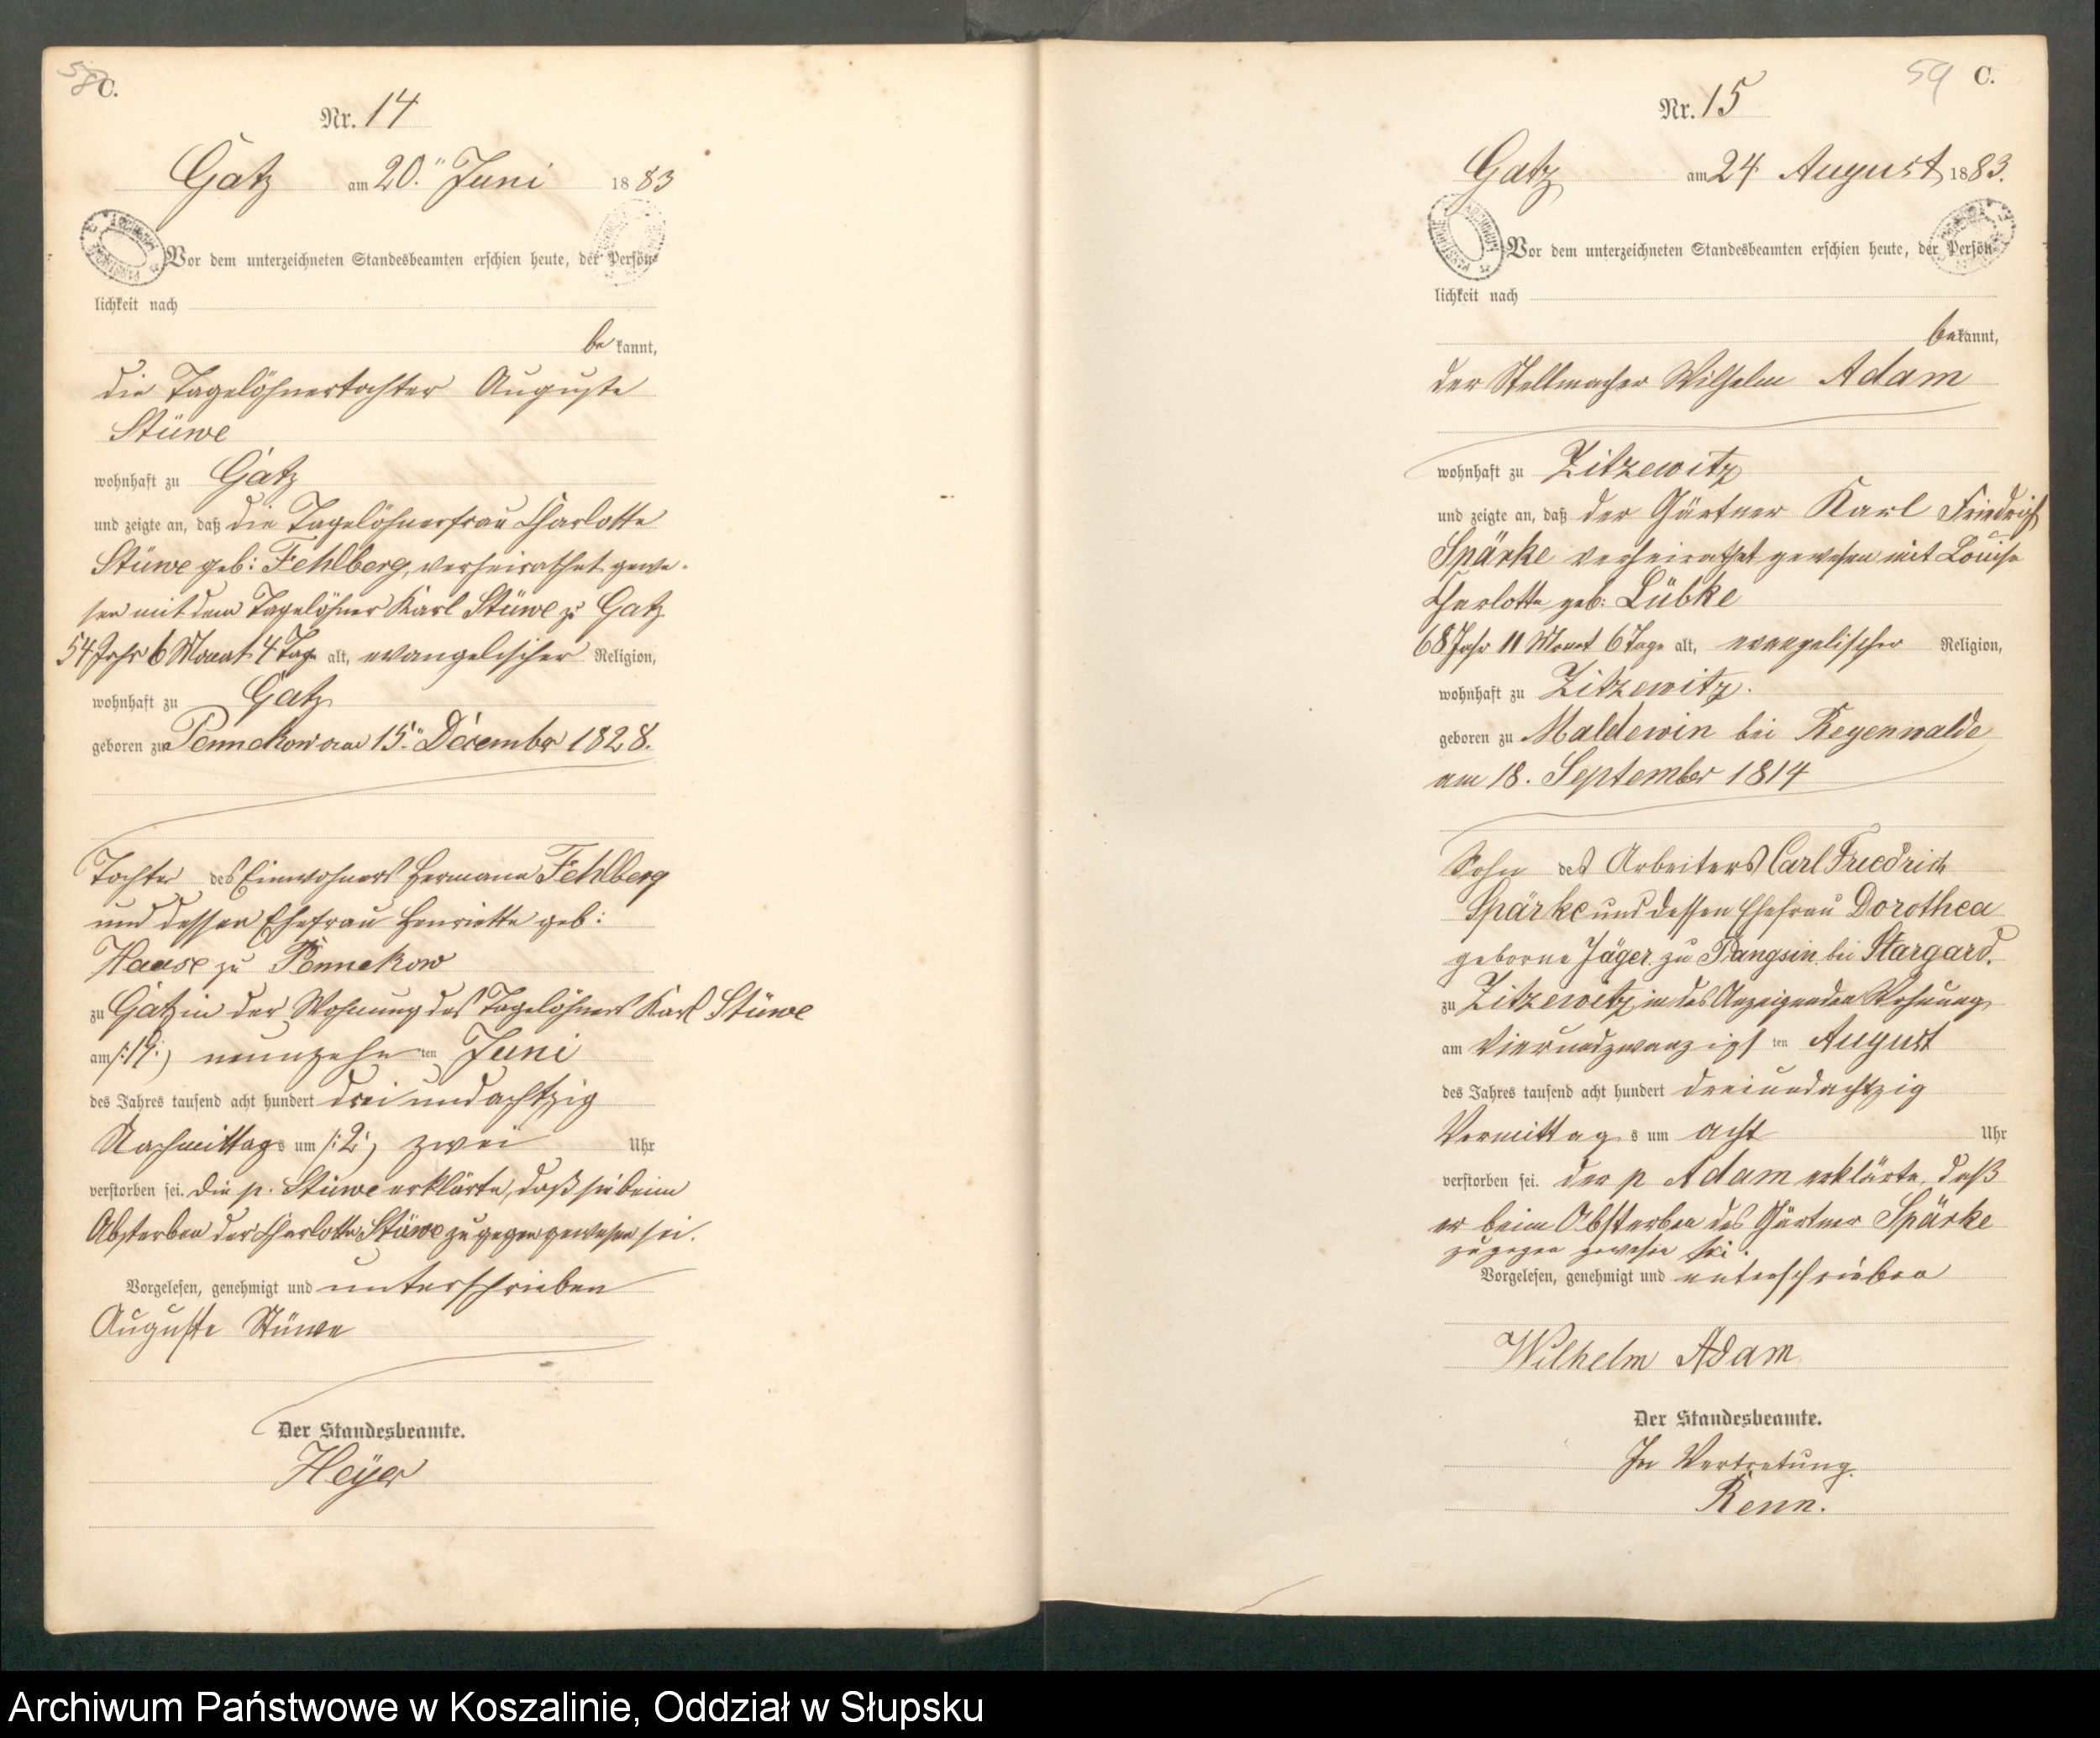 58 C.
Nr. 14
Gatz am 20. Juni 1883
Vor dem unterzeichneten Standesbeamten erschien heute, der Persön-
lichkeit nach
bekannt,
die Tagelöhnertochter Auguste
Stüwe
wohnhaft zu Gatz
und zeigte an, daß die Tagelöhnerfrau Charlotte
Stüwe geb: Fehlberg, verheirathet gewe-
sen mit dem Tagelöhner Karl Stüwe zu Gatz
54 Jahr 6 Monat 4 Tage alt, evangelischer Religion,
wohnhaft zu Gatz
geboren zu Pennekow am 15. December 1828.
Tochter des Einwohners Hermann Fehlberg
und dessen Ehefrau Henriette geb:
Haase zu Pennekow
zu Gatz in der Wohnung des Tagelöhners Karl Stüwe
am /:19:/ neunzehnten Juni
des Jahres tausend acht hundert drei und achtzig
Nachmittags um /:2:/ zwei Uhr
verstorben sei. Die p. Stüwe erklärte, daß sie beim
Absterben der Charlotte Stüwe zugegen gewesen sei.
Vorgelesen, genehmigt und unterschrieben
Auguste Stüwe
Der Standesbeamte.
Heyer
59 C.
Nr. 15
Gatz am 24 August 1883.
Vor dem unterzeichneten Standesbeamten erschien heute, der Persön-
lichkeit nach
bekannt,
der Stellmacher Wilhelm Adam
wohnhaft zu Zitzewitz
und zeigte an, daß der Gärtner Karl Friedrich
Spärke verheirathet gewesen mit Louise
Charlotte geb: Lübke
68 Jahr 11 Monat 6 Tage alt, evangelischer Religion,
wohnhaft zu Zitzewitz.
geboren zu Maldewin bei Regenwalde
am 18. September 1814
Sohn des Arbeiters Carl Friedrich
Spärke und dessen Ehefrau Dorothea
geborne Jäger zu Pangsin bei Stargard.
zu Zitzewitz in des Anzeigenden Wohnung
am vierundzwanzigsten August
des Jahres tausend acht hundert dreiundachtzig
Vormittags um acht Uhr
verstorben sei. Der p Adam erklärte, daß
er beim Absterben des Gärtner Spärke
zugegen gewesen sei.
Vorgelesen, genehmigt und unterschrieben
Wilhelm Adam
Der Standesbeamte.
In Vertretung.
Renn.
Archiwum Państwowe w Koszalinie, Oddział w Słupsku